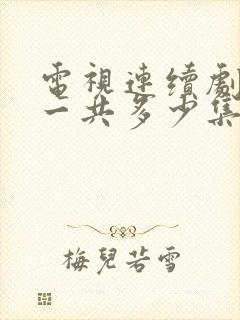 電視連續劇
一共多少集
梅兒若雪